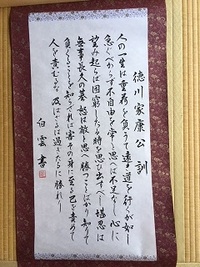 徳川家康公訓
人の一生は重荷を負うて遠き道を行くが如し
急ぐべからず不自由を常と思へば不足なし心に
望み起らば困窮したる時を思ひ出すべし堪忍は
無事長久の基怒は敵と思へ勝つことばかり知りて
負くることを知らざれば害その身に至る己を責めて
人を責むるな及ばざるは過ぎたるに勝れり
白雲書